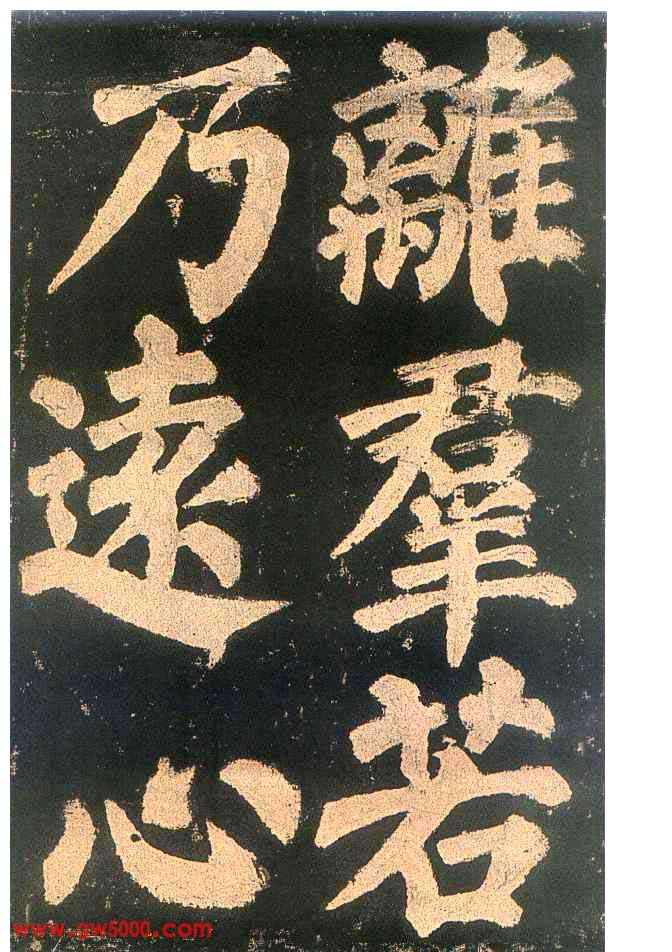 離羣若
乃遠心
www.gw5000.com